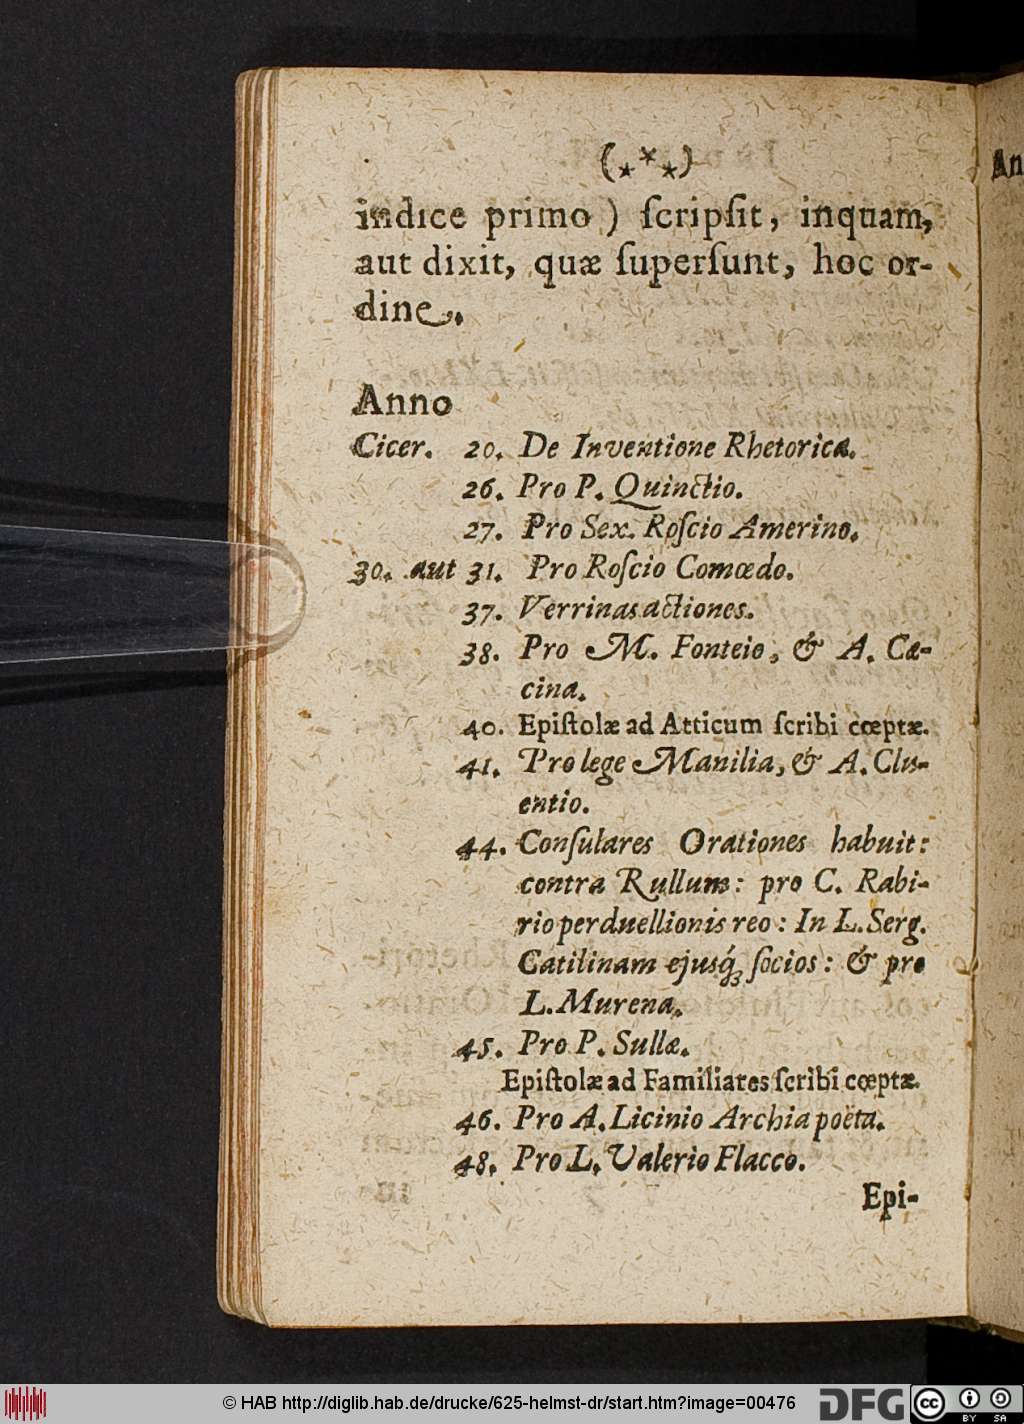 (⁎*⁎)
An
indice primo ) ſcripſit, inquam,
aut dixit, quæ ſuperſunt, hoc or-
dine.
Anno
Cicer. 20. De Inventione Rhetorica.
26. Pro P. Quinctio.
27. Pro Sex. Roſcio Amerino.
30. aut 31. Pro Roſcio Comœdo.
37. Verrinas actiones.
38. Pro M. Fonteio, & A. Cæ-
cina.
40. Epiſtolæ ad Atticum ſcribi cœptæ.
41. Pro lege Manilia, & A. Clu-
entio.
44. Conſulares Orationes habuit:
contra Rullum: pro C. Rabi-
rio perduellionis reo: In L. Serg.
Catilinam ejusq́; ſocios: & pro
L. Murena.
45. Pro P. Sulla.
Epiſtolæ ad Familiares ſcribi cœptæ.
46. Pro A. Licinio Archia poëta.
48. Pro L. Valerio Flacco.
Epi-
© HAB http://diglib.hab.de/drucke/625-helmst-dr/start.htm?image=00476
DFG
cc BY SA